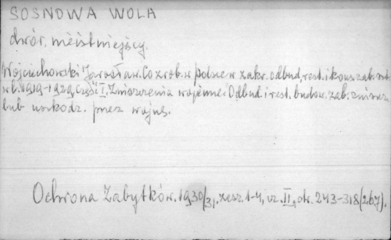 SOSNOWA WOLA
dwór. nieistniejący.
Wojciechowski Jarosław. Co zrob. w Polsce w zakr. odbud. rest. i kons. zab. szt.
w l. 1919-1929. Część I. Zniszczenia wojenne. Odbud. i rest. budow. zab. zniszcz.
lub uszkodz. przez wojnę.
Ochrona Zabytków. 1930/31, zesz. 1-4, cz. II, str. 243-318 (267).